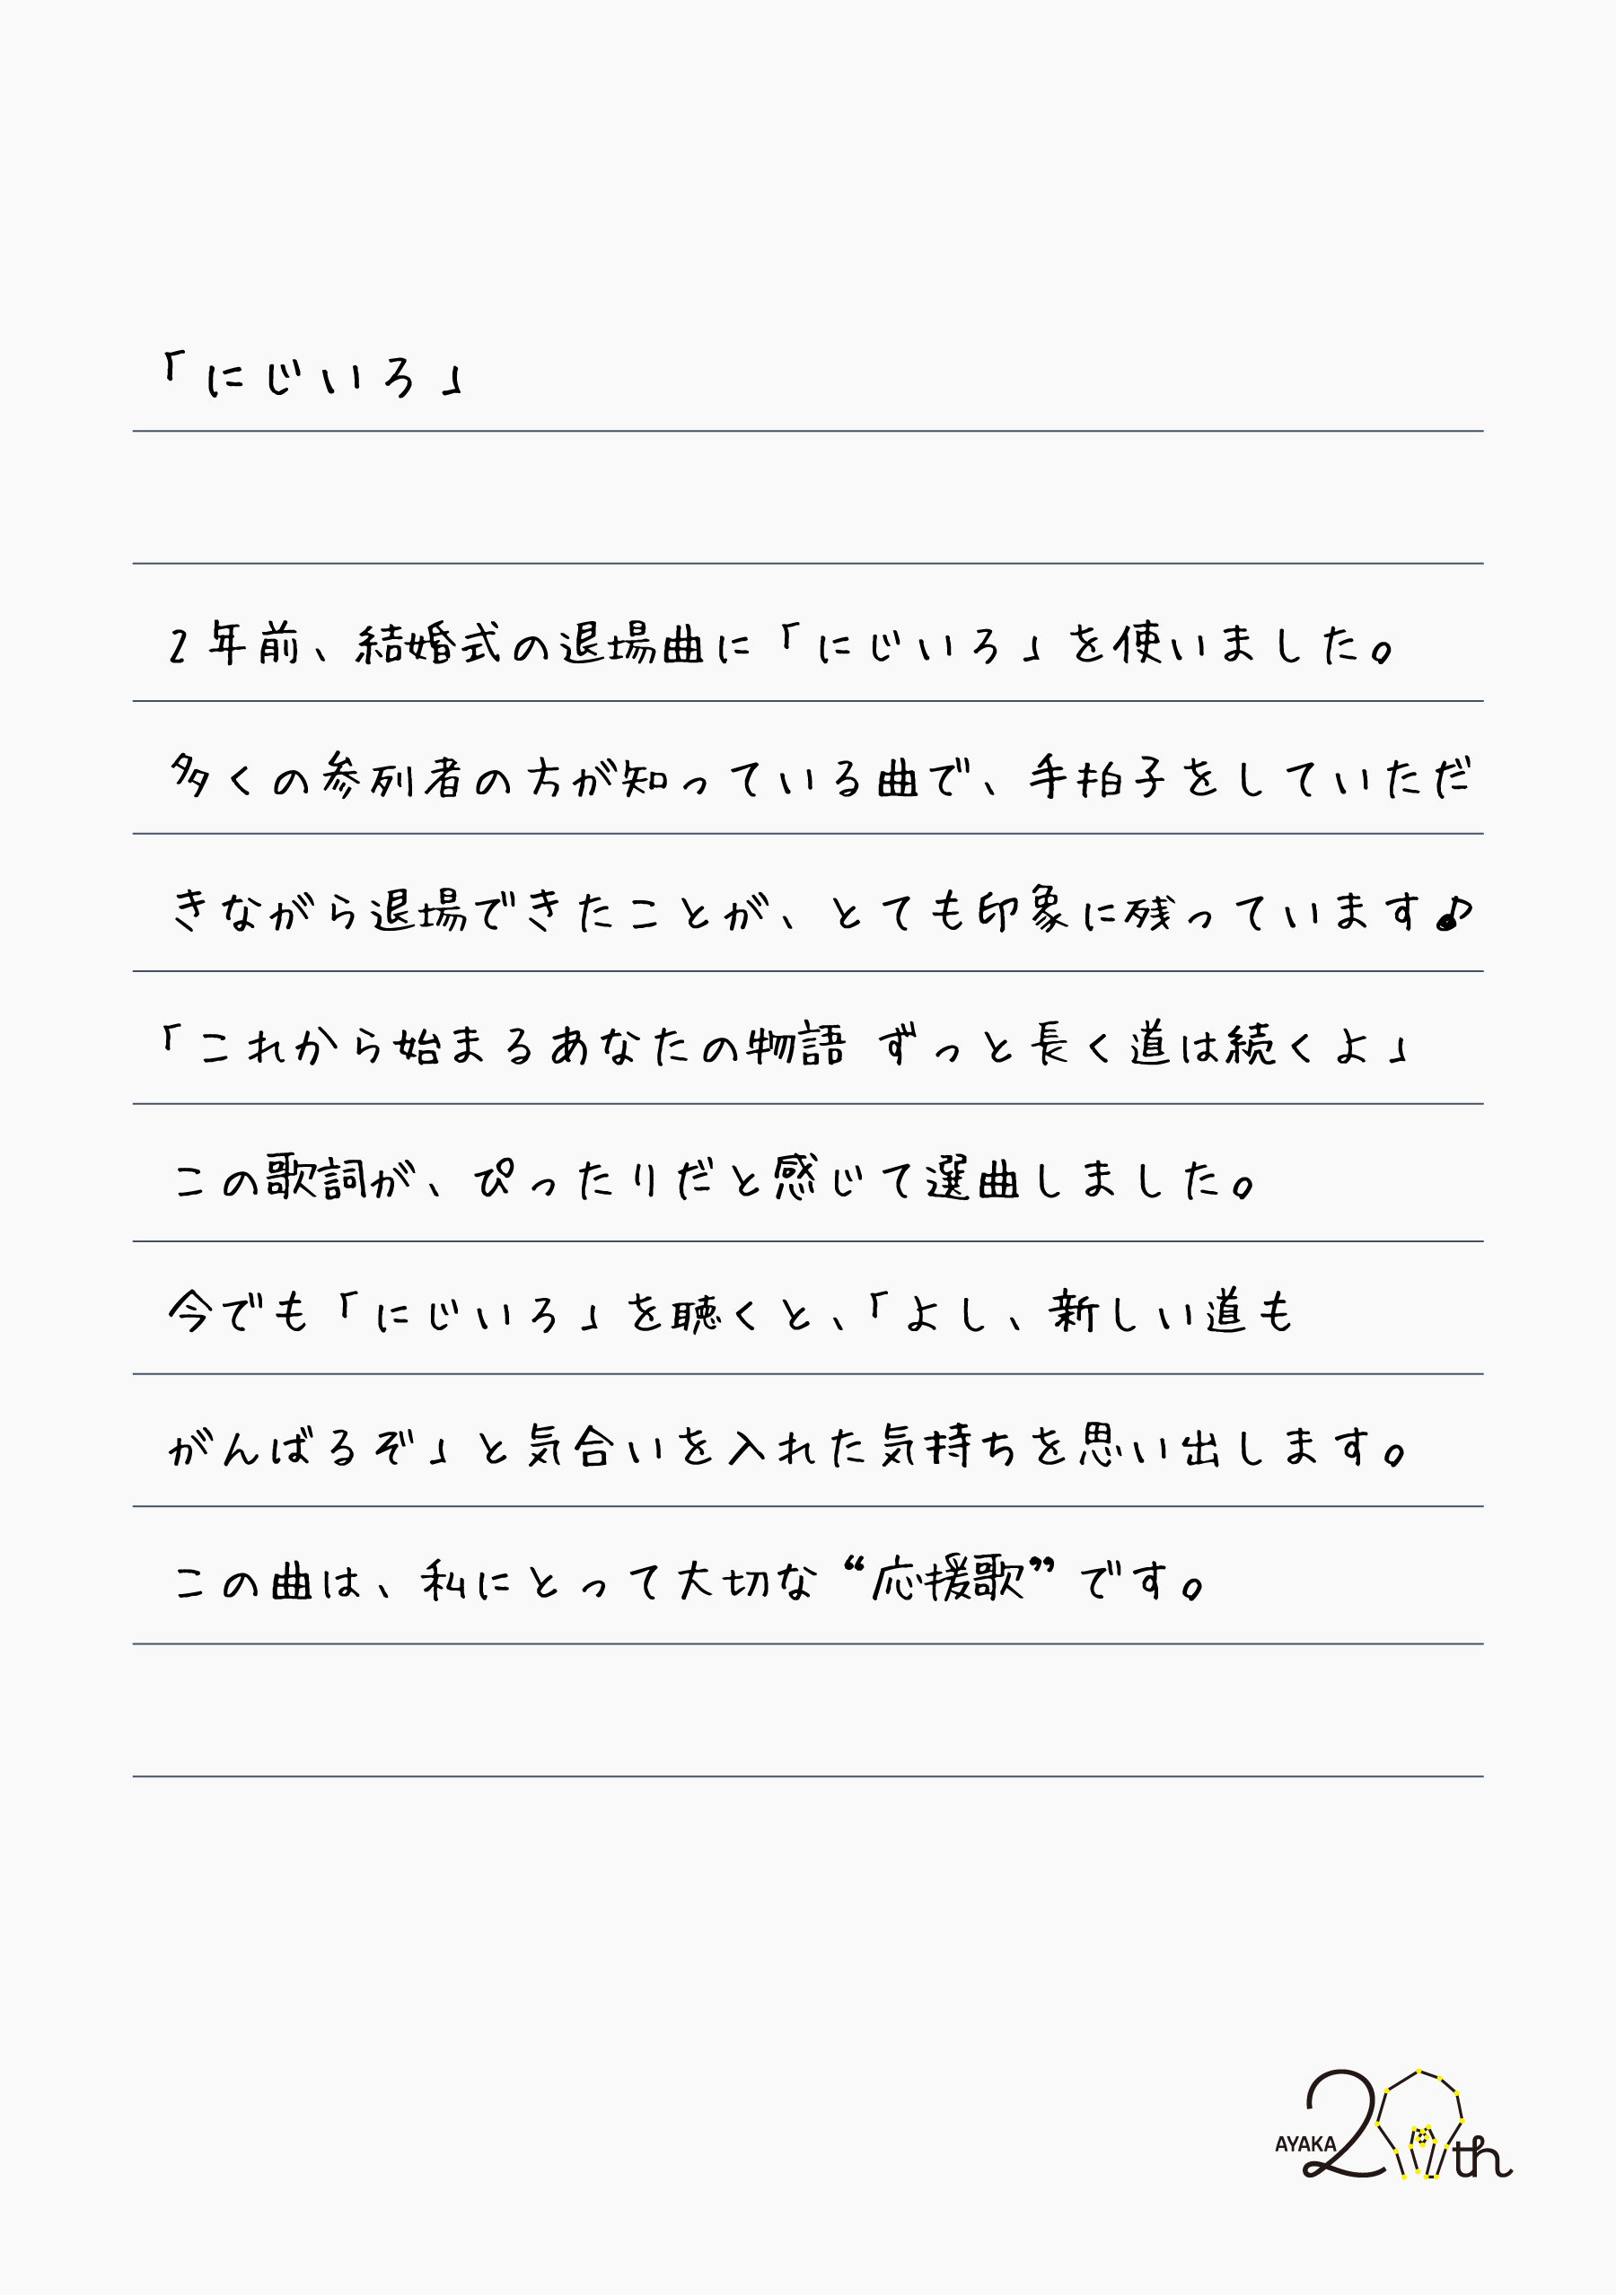 「にじいろ」
2年前、結婚式の退場曲に「にじいろ」を使いました。
多くの参列者の方が知っている曲で、手拍子をしていただ
きながら退場できたことが、とても印象に残っています♪
「これから始まるあなたの物語 ずっと長く道は続くよ」
この歌詞が、ぴったりだと感じて選曲しました。
今でも「にじいろ」を聴くと、「よし、新しい道も
がんばるぞ」と気合いを入れた気持ちを思い出します。
この曲は、私にとって大切な“応援歌”です。
AYAKA 20th